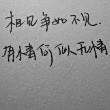 相见争如不见，
有情何似无情